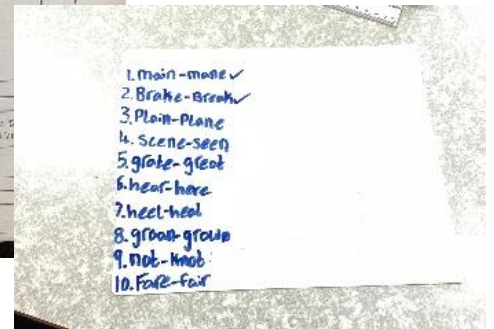 1. main-mane ✓
2. Brake-Break ✓
3. Plain-Plane
4. Scene-seen
5. grate-great
6. hear-here
7. heel-heal
8. groan-grown
9. not-knot
10. Fare-fair